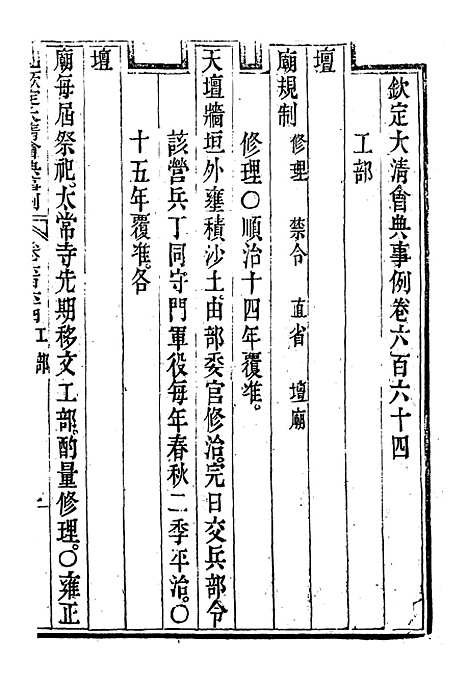 欽定大清會典事例卷六百六十四
工部
壇
廟規制 修理 禁令 直省 壇廟
修理○順治十四年覆准。
天壇牆垣外壅積沙土。由部委官修治。完日交兵部令
該營兵丁同守門軍役每年春秋二季平治。○
十五年覆准。各
壇
廟每屆祭祀。太常寺先期移文工部。酌量修理。○雍正
欽定大清會典事例 卷六百六十四 工部 一